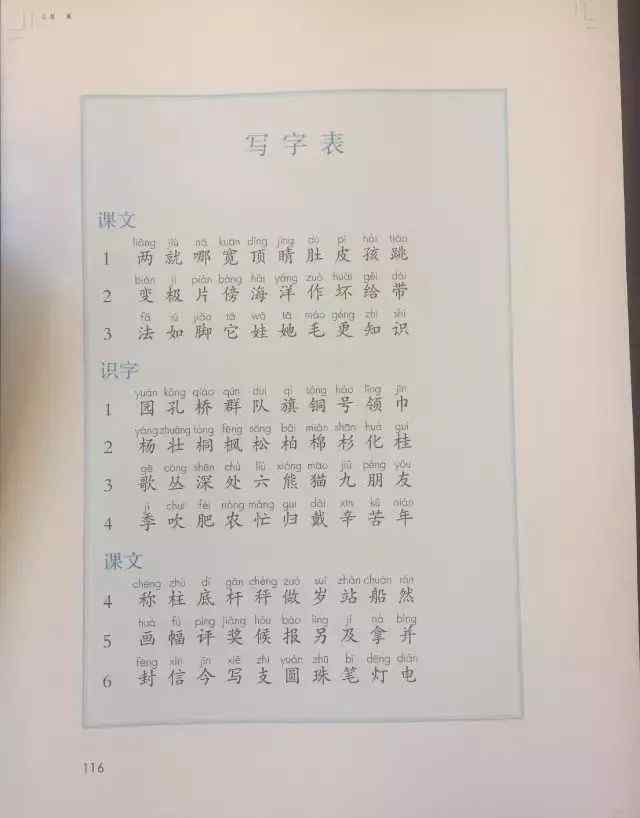 写字表
课文
liǎng jiù nǎ kuān dǐng jīng dù pí hái tiào
1 两 就 哪 宽 顶 睛 肚 皮 孩 跳
biàn jí piàn bàng hǎi yáng zuò huài gěi dài
2 变 极 片 傍 海 洋 作 坏 给 带
fǎ rú jiǎo tā wá tā máo gèng zhī shí
3 法 如 脚 它 娃 她 毛 更 知 识
识字
yuán kǒng qiáo qún duì qí tóng hào lǐng jīn
1 园 孔 桥 群 队 旗 铜 号 领 巾
yáng zhuàng tóng fēng sōng bǎi mián shān huà guì
2 杨 壮 桐 枫 松 柏 棉 杉 化 桂
gē cóng shēn chù liù xióng māo jiǔ péng yǒu
3 歌 丛 深 处 六 熊 猫 九 朋 友
jì chuī féi nóng máng guī dài xīn kǔ nián
4 季 吹 肥 农 忙 归 戴 辛 苦 年
课文
chēng zhù dǐ gān chèng zuò suì zhàn chuán rán
4 称 柱 底 杆 秤 做 岁 站 船 然
huà fú píng jiǎng hòu bào lìng jí ná bìng
5 画 幅 评 奖 候 报 另 及 拿 并
fēng xìn jīn xiě zhī yuán zhū bǐ dēng diàn
6 封 信 今 写 支 圆 珠 笔 灯 电
116